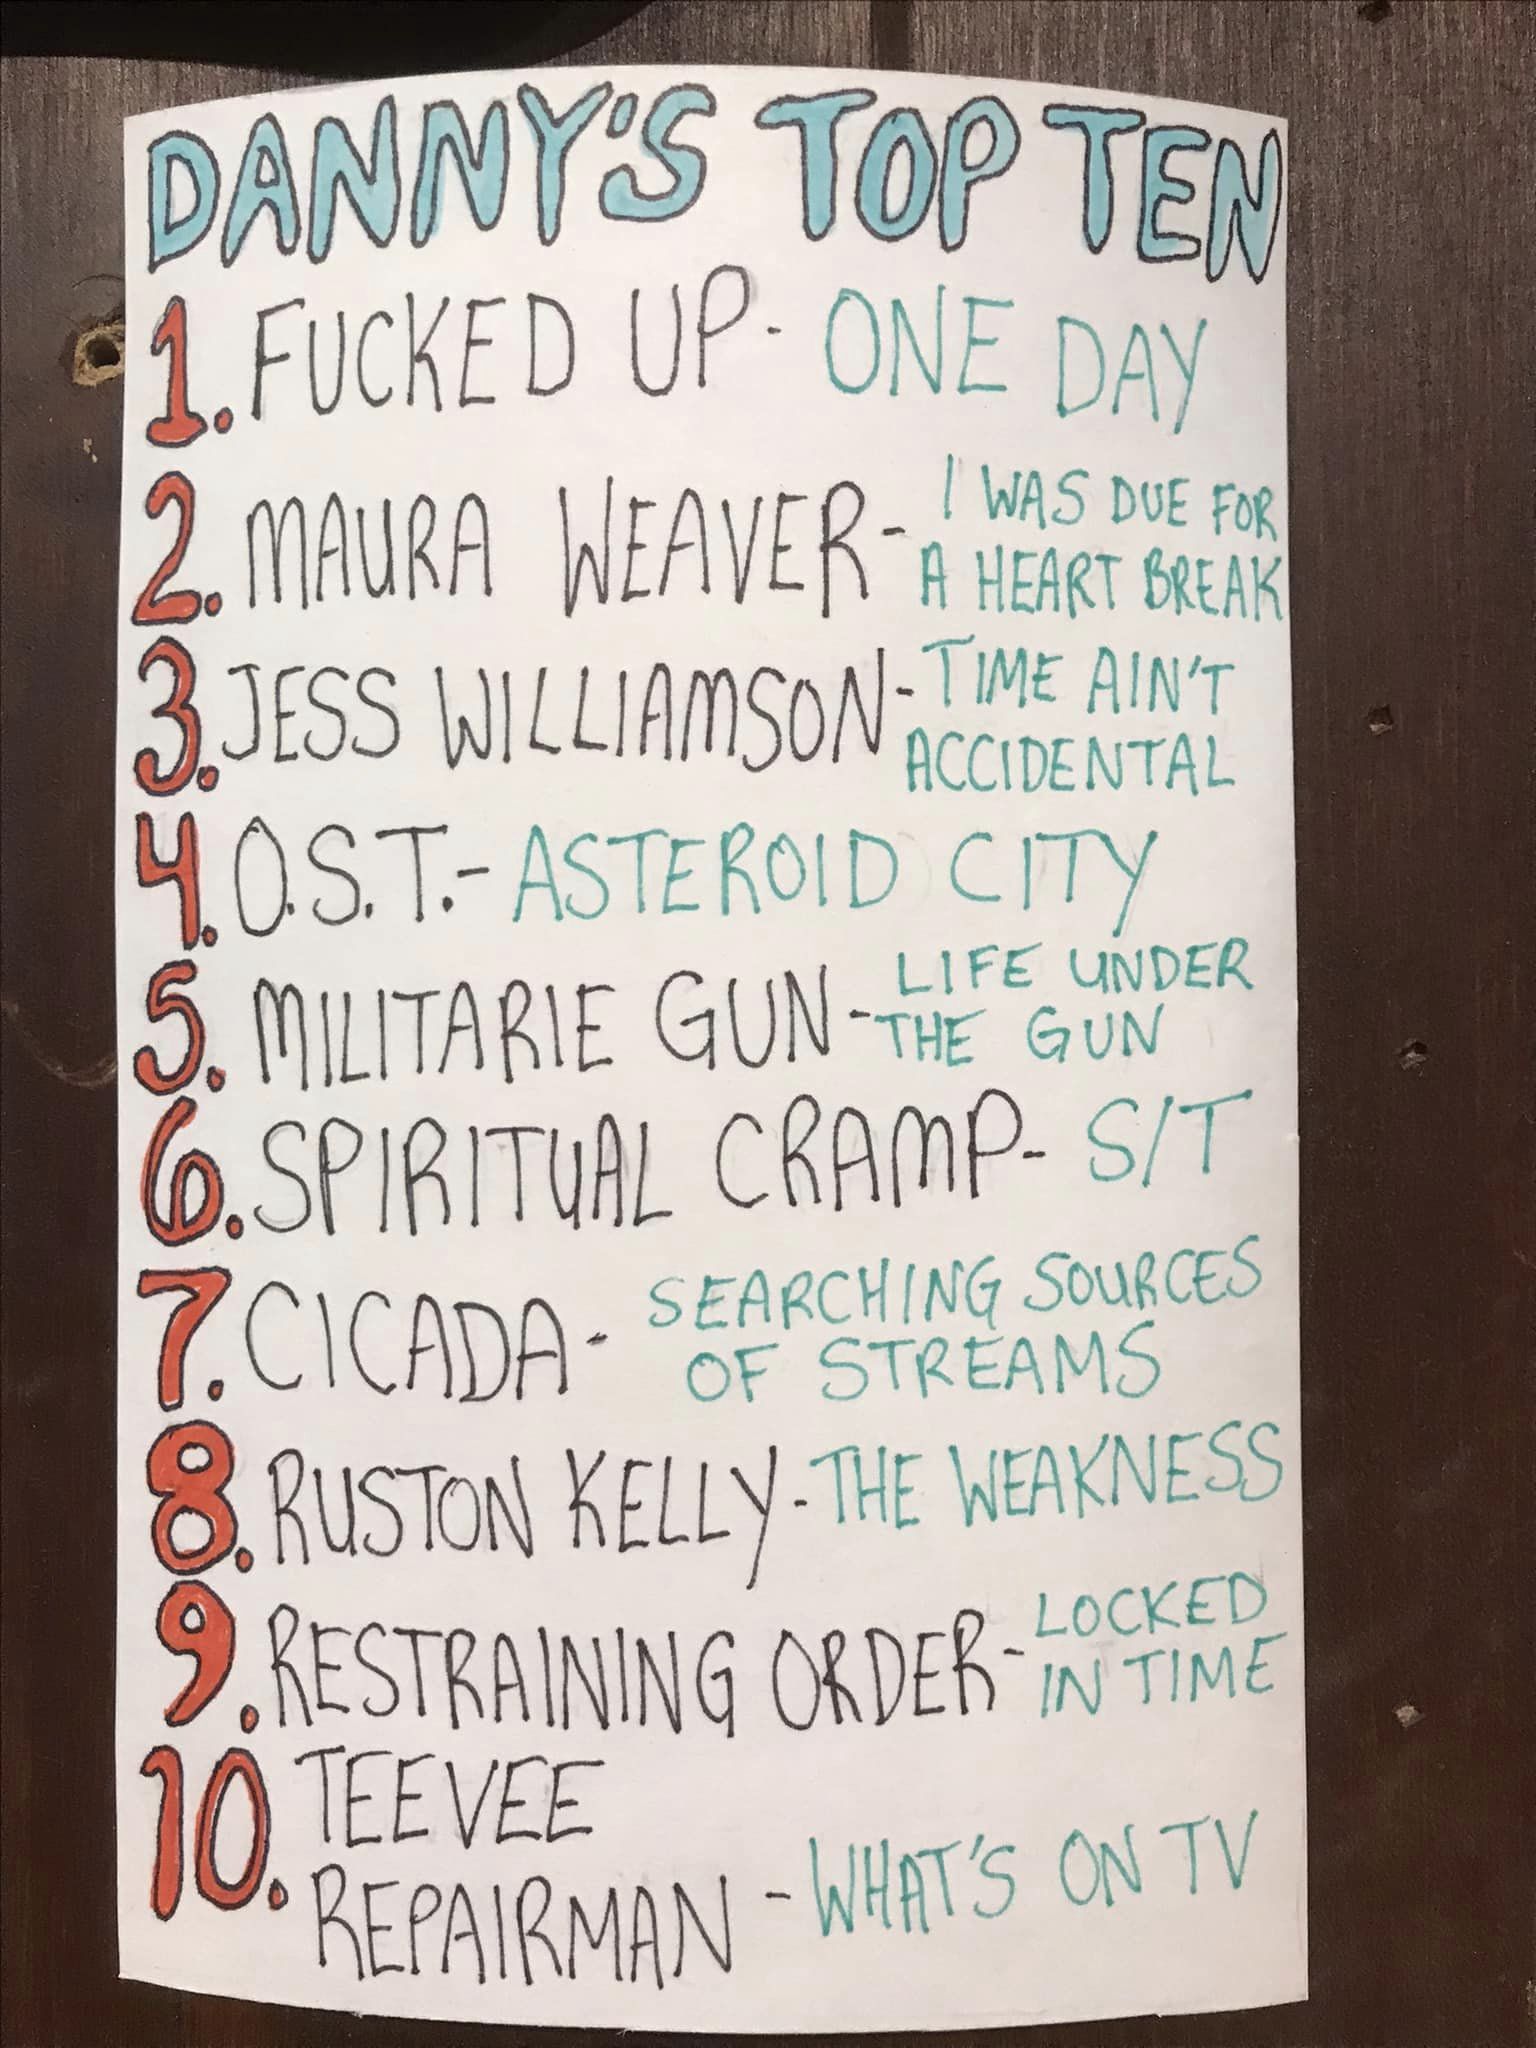 DANNY'S TOP TEN
1. FUCKED UP - ONE DAY
2. MAURA WEAVER - I WAS DUE FOR
A HEART BREAK
3. JESS WILLIAMSON - TIME AIN'T
ACCIDENTAL
4. O.S.T. - ASTEROID CITY
5. MILITARIE GUN - LIFE UNDER
THE GUN
6. SPIRITUAL CRAMP - S/T
7. CICADA - SEARCHING SOURCES
OF STREAMS
8. RUSTON KELLY - THE WEAKNESS
9. RESTRAINING ORDER - LOCKED
IN TIME
10. TEEVEE
REPAIRMAN - WHAT'S ON TV